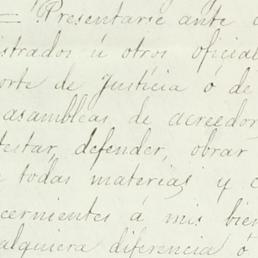 = Presentarse ante
istrados ú otros oficial
orte de Justicia ó de
asambleas de acreedor
testar, defender, obrar
todas materias y c
cernientes á mis bien
alquiera diferencia ó